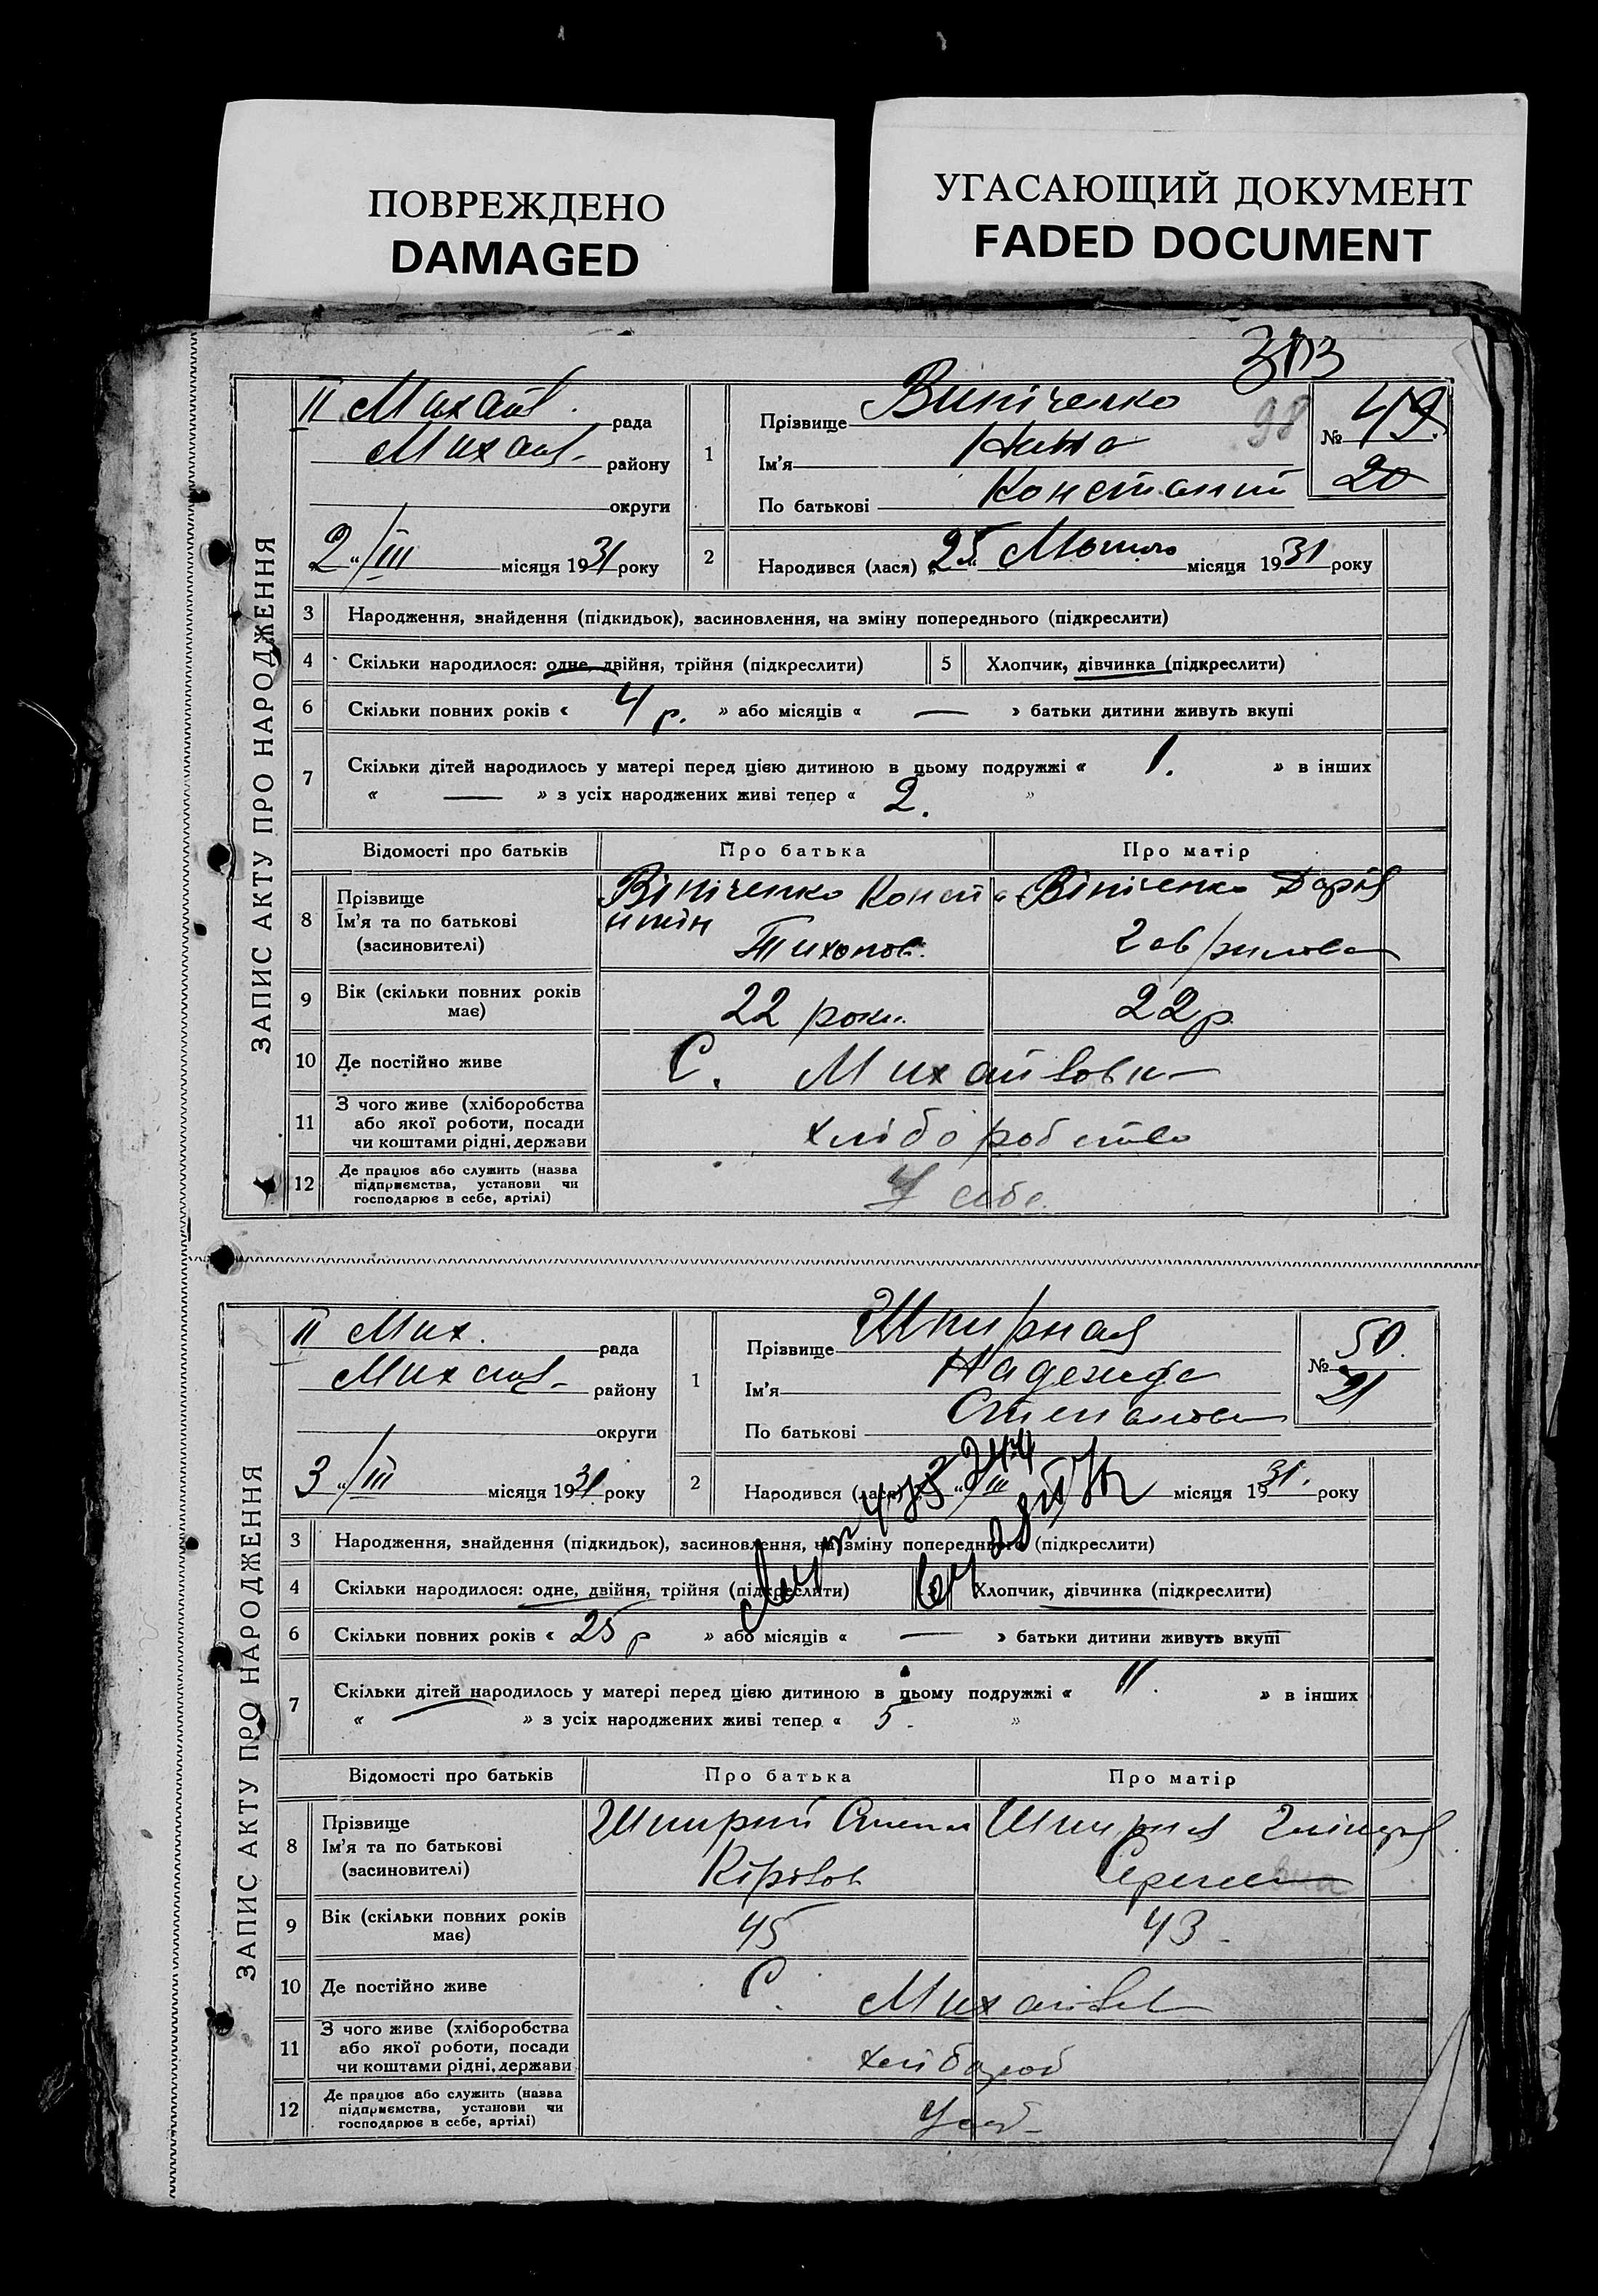 ПОВРЕЖДЕНО
DAMAGED
УГАСАЮЩИЙ ДОКУМЕНТ
FADED DOCUMENT
ЗАПИС АКТУ ПРО НАРОДЖЕННЯ
II Михайл. рада
Михайл. району
округи
2 "/III місяця 1931 року
1 Прізвище Вініченко
98
Ім'я Нина
По батькові Констант
№ 49
20
2 Народився (лася) „25" Лютого місяця 1931 року
3 Народження, знайдення (підкидьок), засиновлення, на зміну попереднього (підкреслити)
4 Скільки народилося: одне, двійня, трійня (підкреслити) 5 Хлопчик, дівчинка (підкреслити)
6 Скільки повних років « 4 р. » або місяців « — » батьки дитини живуть вкупі
7 Скільки дітей народилось у матері перед цією дитиною в цьому подружжі « 1. » в інших
« — » з усіх народжених живі тепер « 2. »
Відомості про батьків Про батька Про матір
8 Прізвище
Ім'я та по батькові
(засиновителі)
Вініченко Конста
нтін
Тихонов.
Вініченко Дарія
Гаврилова
9 Вік (скільки повних років має) 22 роки. 22 р
10 Де постійно живе С. Михайловка
11 З чого живе (хліборобства
або якої роботи, посади
чи коштами рідні, держави
хліборобство
12 Де працює або служить (назва
підприємства, установи чи
господарює в себе, артілі)
У себе.
ЗАПИС АКТУ ПРО НАРОДЖЕННЯ
II Мих. рада
Михайл. району
округи
3 "/III місяця 1931 року
1 Прізвище Шпирная
Ім'я Надежда
По батькові Степанова
№ 50.
21
2 Народився (лася) "/III місяця 1931. року
3 Народження, знайдення (підкидьок), засиновлення, на зміну попереднього (підкреслити)
4 Скільки народилося: одне, двійня, трійня (підкреслити) Хлопчик, дівчинка (підкреслити)
6 Скільки повних років « 25 р » або місяців « — » батьки дитини живуть вкупі
7 Скільки дітей народилось у матері перед цією дитиною в цьому подружжі « 11. » в інших
« — » з усіх народжених живі тепер « 5. »
Відомості про батьків Про батька Про матір
8 Прізвище
Ім'я та по батькові
(засиновителі)
Шпирний Степан
Шпирная
9 Вік (скільки повних років має) 45 43
10 Де постійно живе С. Михайлов
11 З чого живе (хліборобства
або якої роботи, посади
чи коштами рідні, держави
хлібороб
12 Де працює або служить (назва
підприємства, установи чи
господарює в себе, артілі)
У себ